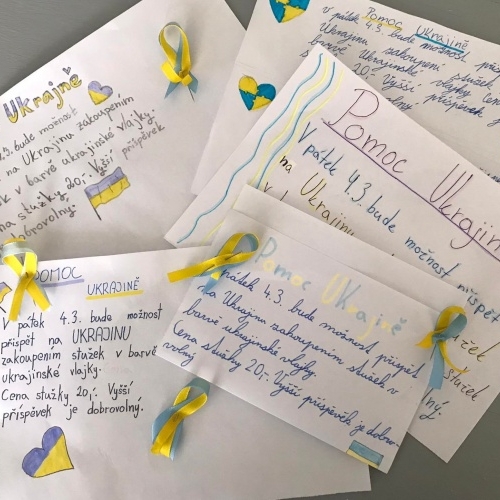 Ukrajně
4.3. bude možnost
na Ukrajinu zakoupením
k v barvě ukrajinské vlajky.
na stužky 20,-. Vyšší příspěvek
dobrovolný.
Pomoc Ukrajině
v pátek 4.3. bude možnost
Ukrajinu zakoupení stužek
barvě Ukrajinské vlajky. Cena
20,-. Vyšší příspěvek
Pomoc Ukrajin
V pátek 4.3. bude
na Ukrajinu
možnost přispět
stužek
POMOC
UKRAJINĚ
V pátek 4.3. bude možnost
přispět na UKRAJINU
zakoupením stužek v barvě
ukrajinské vlajky.
Cena stužky 20,-. Vyšší
příspěvek je dobrovolný.
Pomoc Ukrajně
pátek 4.3. bude možnost přispět
na Ukrajinu zakoupením stužek v
barvě ukrajinské vlajky.
Cena stužky 20,-. Vyšší příspěvek je dobro-
volný